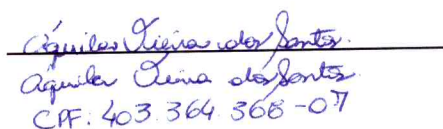 Áquila Vieira dos Santos.
Aquila Vieira dos Santos.
CPF: 403.364.368-07